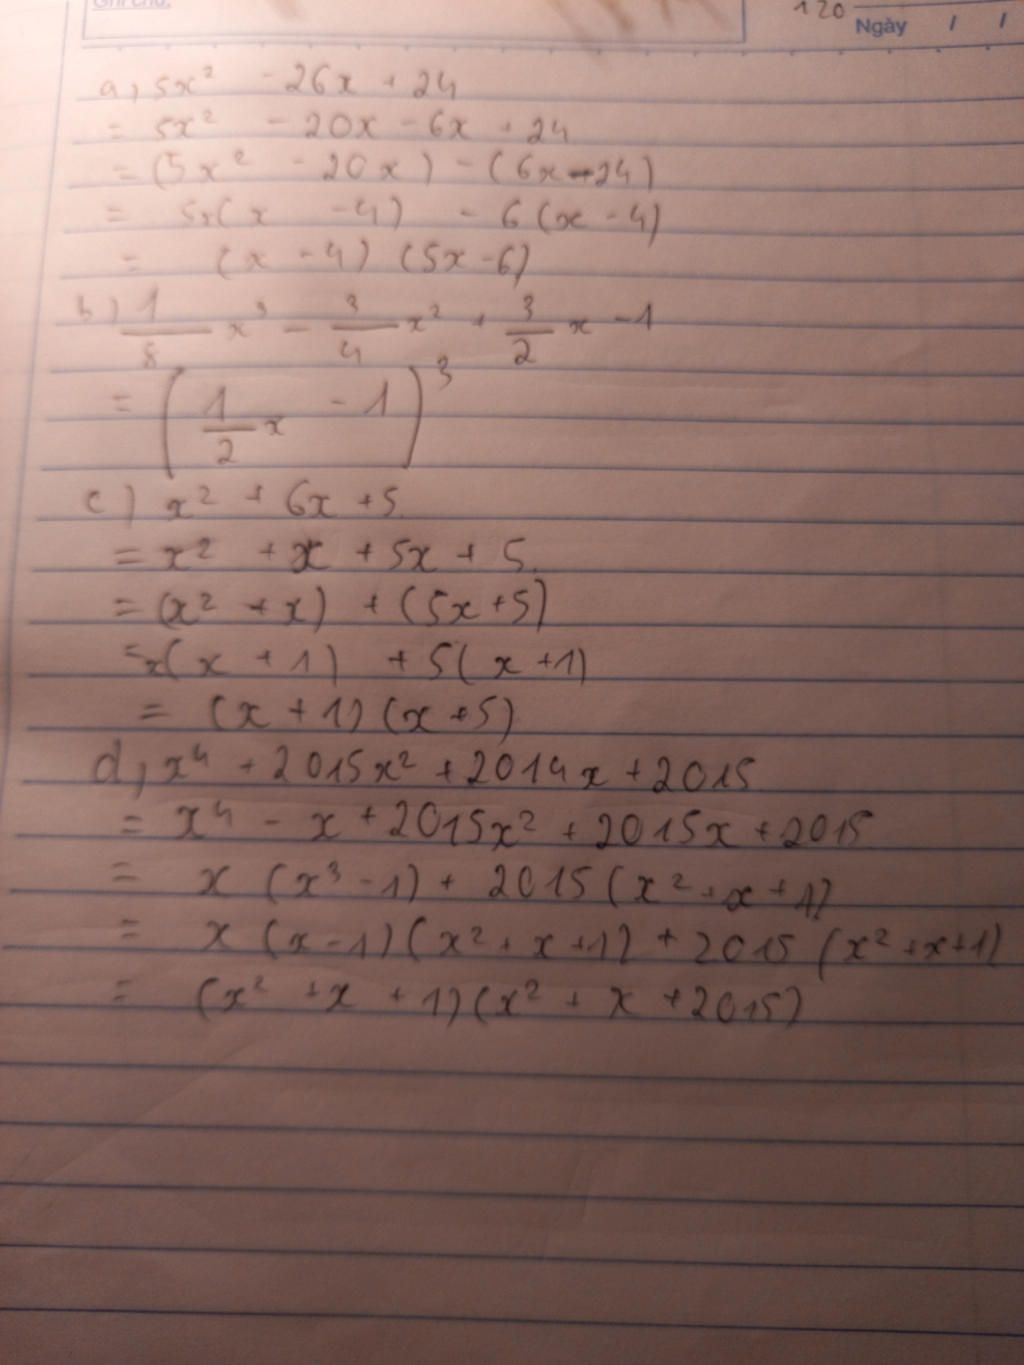 Ghi chú:
120
Ngày / /
a, 5x² - 26x + 24
= 5x² - 20x - 6x + 24
= (5x² - 20x) - (6x - 24)
= 5x(x - 4) - 6(x - 4)
= (x - 4) (5x - 6)
b) 1/8 x³ - 3/4 x² + 3/2 x - 1
= (1/2 x - 1)³
c) x² + 6x + 5
= x² + x + 5x + 5
= (x² + x) + (5x + 5)
= x(x + 1) + 5(x + 1)
= (x + 1) (x + 5)
d, x⁴ + 2015x² + 2014x + 2015
= x⁴ - x + 2015x² + 2015x + 2015
= x (x³ - 1) + 2015 (x² + x + 1)
= x (x - 1) (x² + x + 1) + 2015 (x² + x + 1)
= (x² + x + 1) (x² + x + 2015)